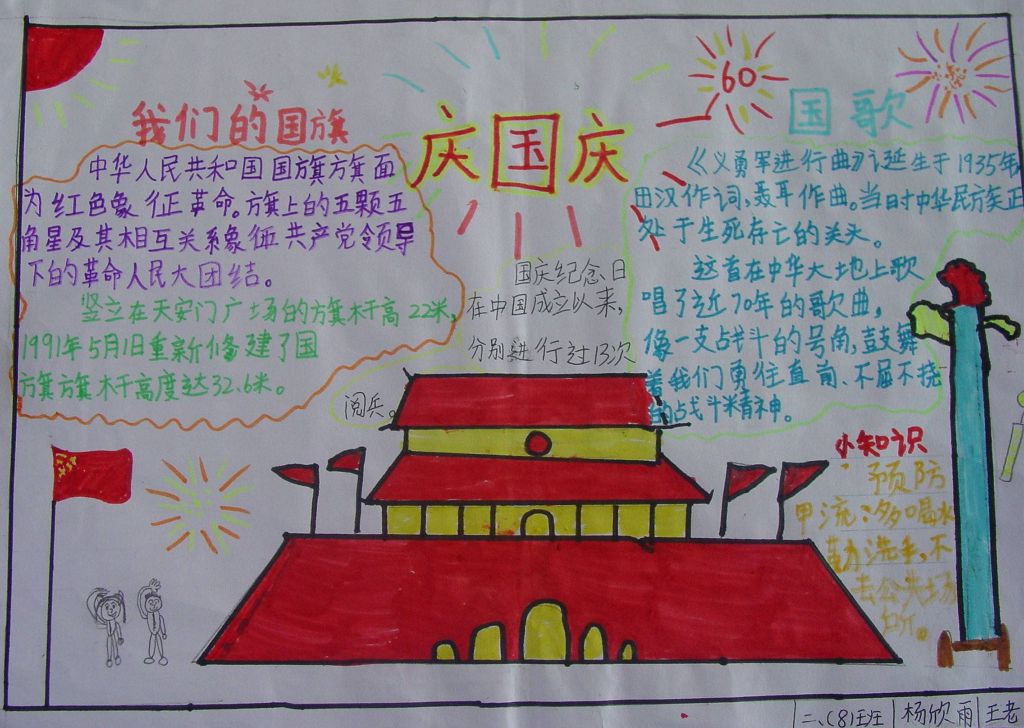 我们的国旗
中华人民共和国国旗方旗面
为红色象征革命。方旗上的五颗五
角星及其相互关系象征共产党领导
下的革命人民大团结。
竖立在天安门广场的方旗杆高22米,
1991年5月1日重新修建了国
方旗方旗杆高度达32.6米。
庆国庆
国庆纪念日
在中国成立以来,
分别进行过13次
阅兵。
60
国歌
《义勇军进行曲》诞生于1935年
田汉作词,聂耳作曲。当日寸中华民族正
处于生死存亡的关头。
这首在中华大地上歌
唱了近70年的歌曲,
像一支战斗的号角,鼓舞
着我们勇往直前、不屈不挠
的战斗精神。
小知识
预防
甲流:多喝水
勤洗手,不
去公共场
所。
二、(8)班 杨欣雨 王老